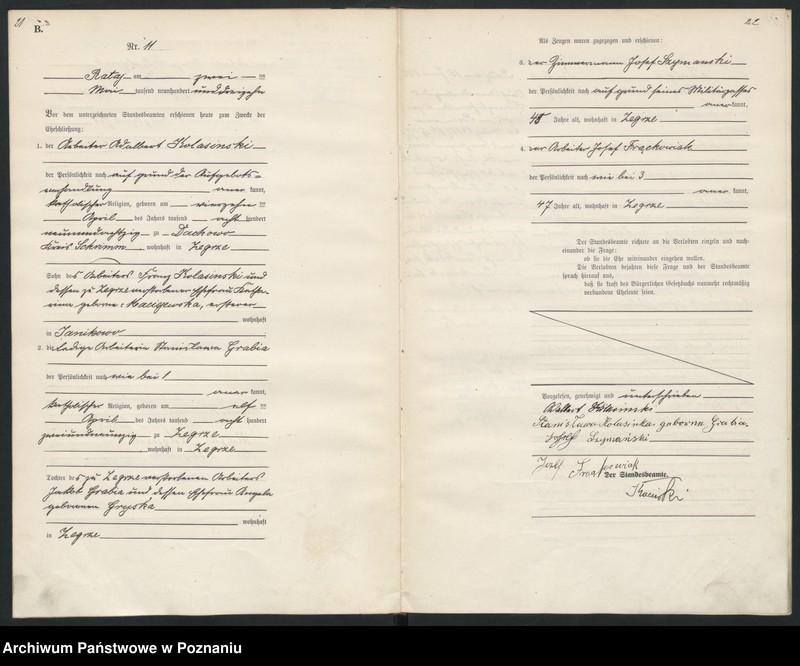 21
B.
Nr. 11
Rataj am zwei ten
Mai tausend neunhundert und dreizehn
Vor dem unterzeichneten Standesbeamten erschienen heute zum Zwecke der
Eheschließung:
1. der Arbeiter Adalbert Kolasinski
der Persönlichkeit nach auf grund der Aufgebots=
verhandlung anerkannt,
katholischer Religion, geboren am vierzehn ten
April des Jahres tausend acht hundert
neunundachtzig zu Dachowo
Kreis Schrimm, wohnhaft in Zegrze
Sohn des Arbeiters Franz Kolasinski und
dessen zu Zegrze verstorbenen Ehefrau Katha-
rina geborene Maciejewska, ersterer
wohnhaft
in Janikowo
2. die ledige Arbeiterin Stanislawa Grabia
der Persönlichkeit nach wie bei 1
anerkannt,
katholischer Religion, geboren am elf ten
April des Jahres tausend acht hundert
zweiundneunzig zu Zegrze
, wohnhaft in Zegrze
Tochter des zu Zegrze verstorbenen Arbeiters
Jakob Grabia und dessen Ehefrau
geborenen
wohnhaft
in Zegrze
22
Als Zeugen waren zugezogen und erschienen:
3. der Zimmermann Josef Szymanski
der Persönlichkeit nach auf grund seines Militärpasses
anerkannt,
48 Jahre alt, wohnhaft in Zegrze
4. der Arbeiter Josef Frąckowiak
der Persönlichkeit nach wie bei 3
anerkannt,
47 Jahre alt, wohnhaft in Zegrze
Der Standesbeamte richtete an die Verlobten einzeln und nach-
einander die Frage:
ob sie die Ehe miteinander eingehen wollen.
Die Verlobten bejahten diese Frage und der Standesbeamte
sprach hierauf aus,
daß sie kraft des Bürgerlichen Gesetzbuchs nunmehr rechtmäßig
verbundene Eheleute seien.
Vorgelesen, genehmigt und unterschrieben
Adalbert Kolasinski
Stanisława Kolasinska geborna Grabia
Josef Szymański
Josef Frąckowiak
Der Standesbeamte.
Archiwum Państwowe w Poznaniu